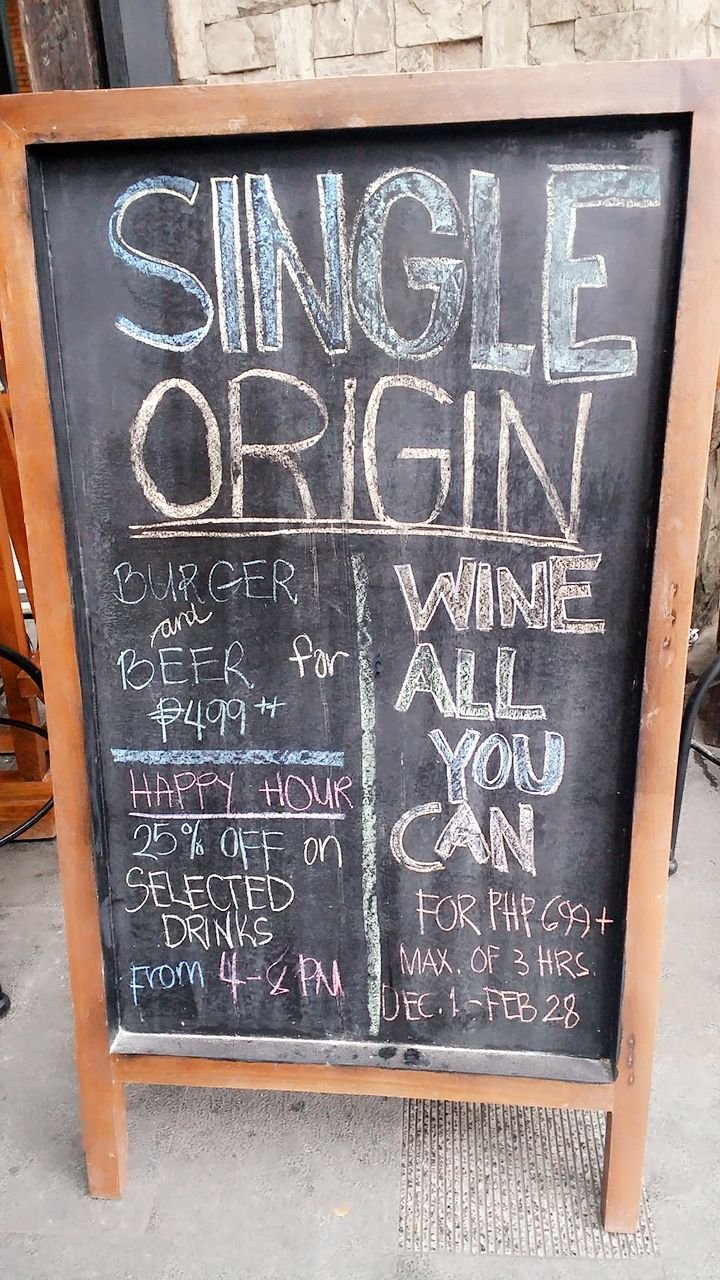 SINGLE
ORIGIN
BURGER
and
BEER for
₱499++
HAPPY HOUR
25% OFF on
SELECTED
DRINKS
from 4-8 PM
WINE
ALL
YOU
CAN
FOR PHP 699+
MAX. OF 3 HRS.
DEC. 1 - FEB 28